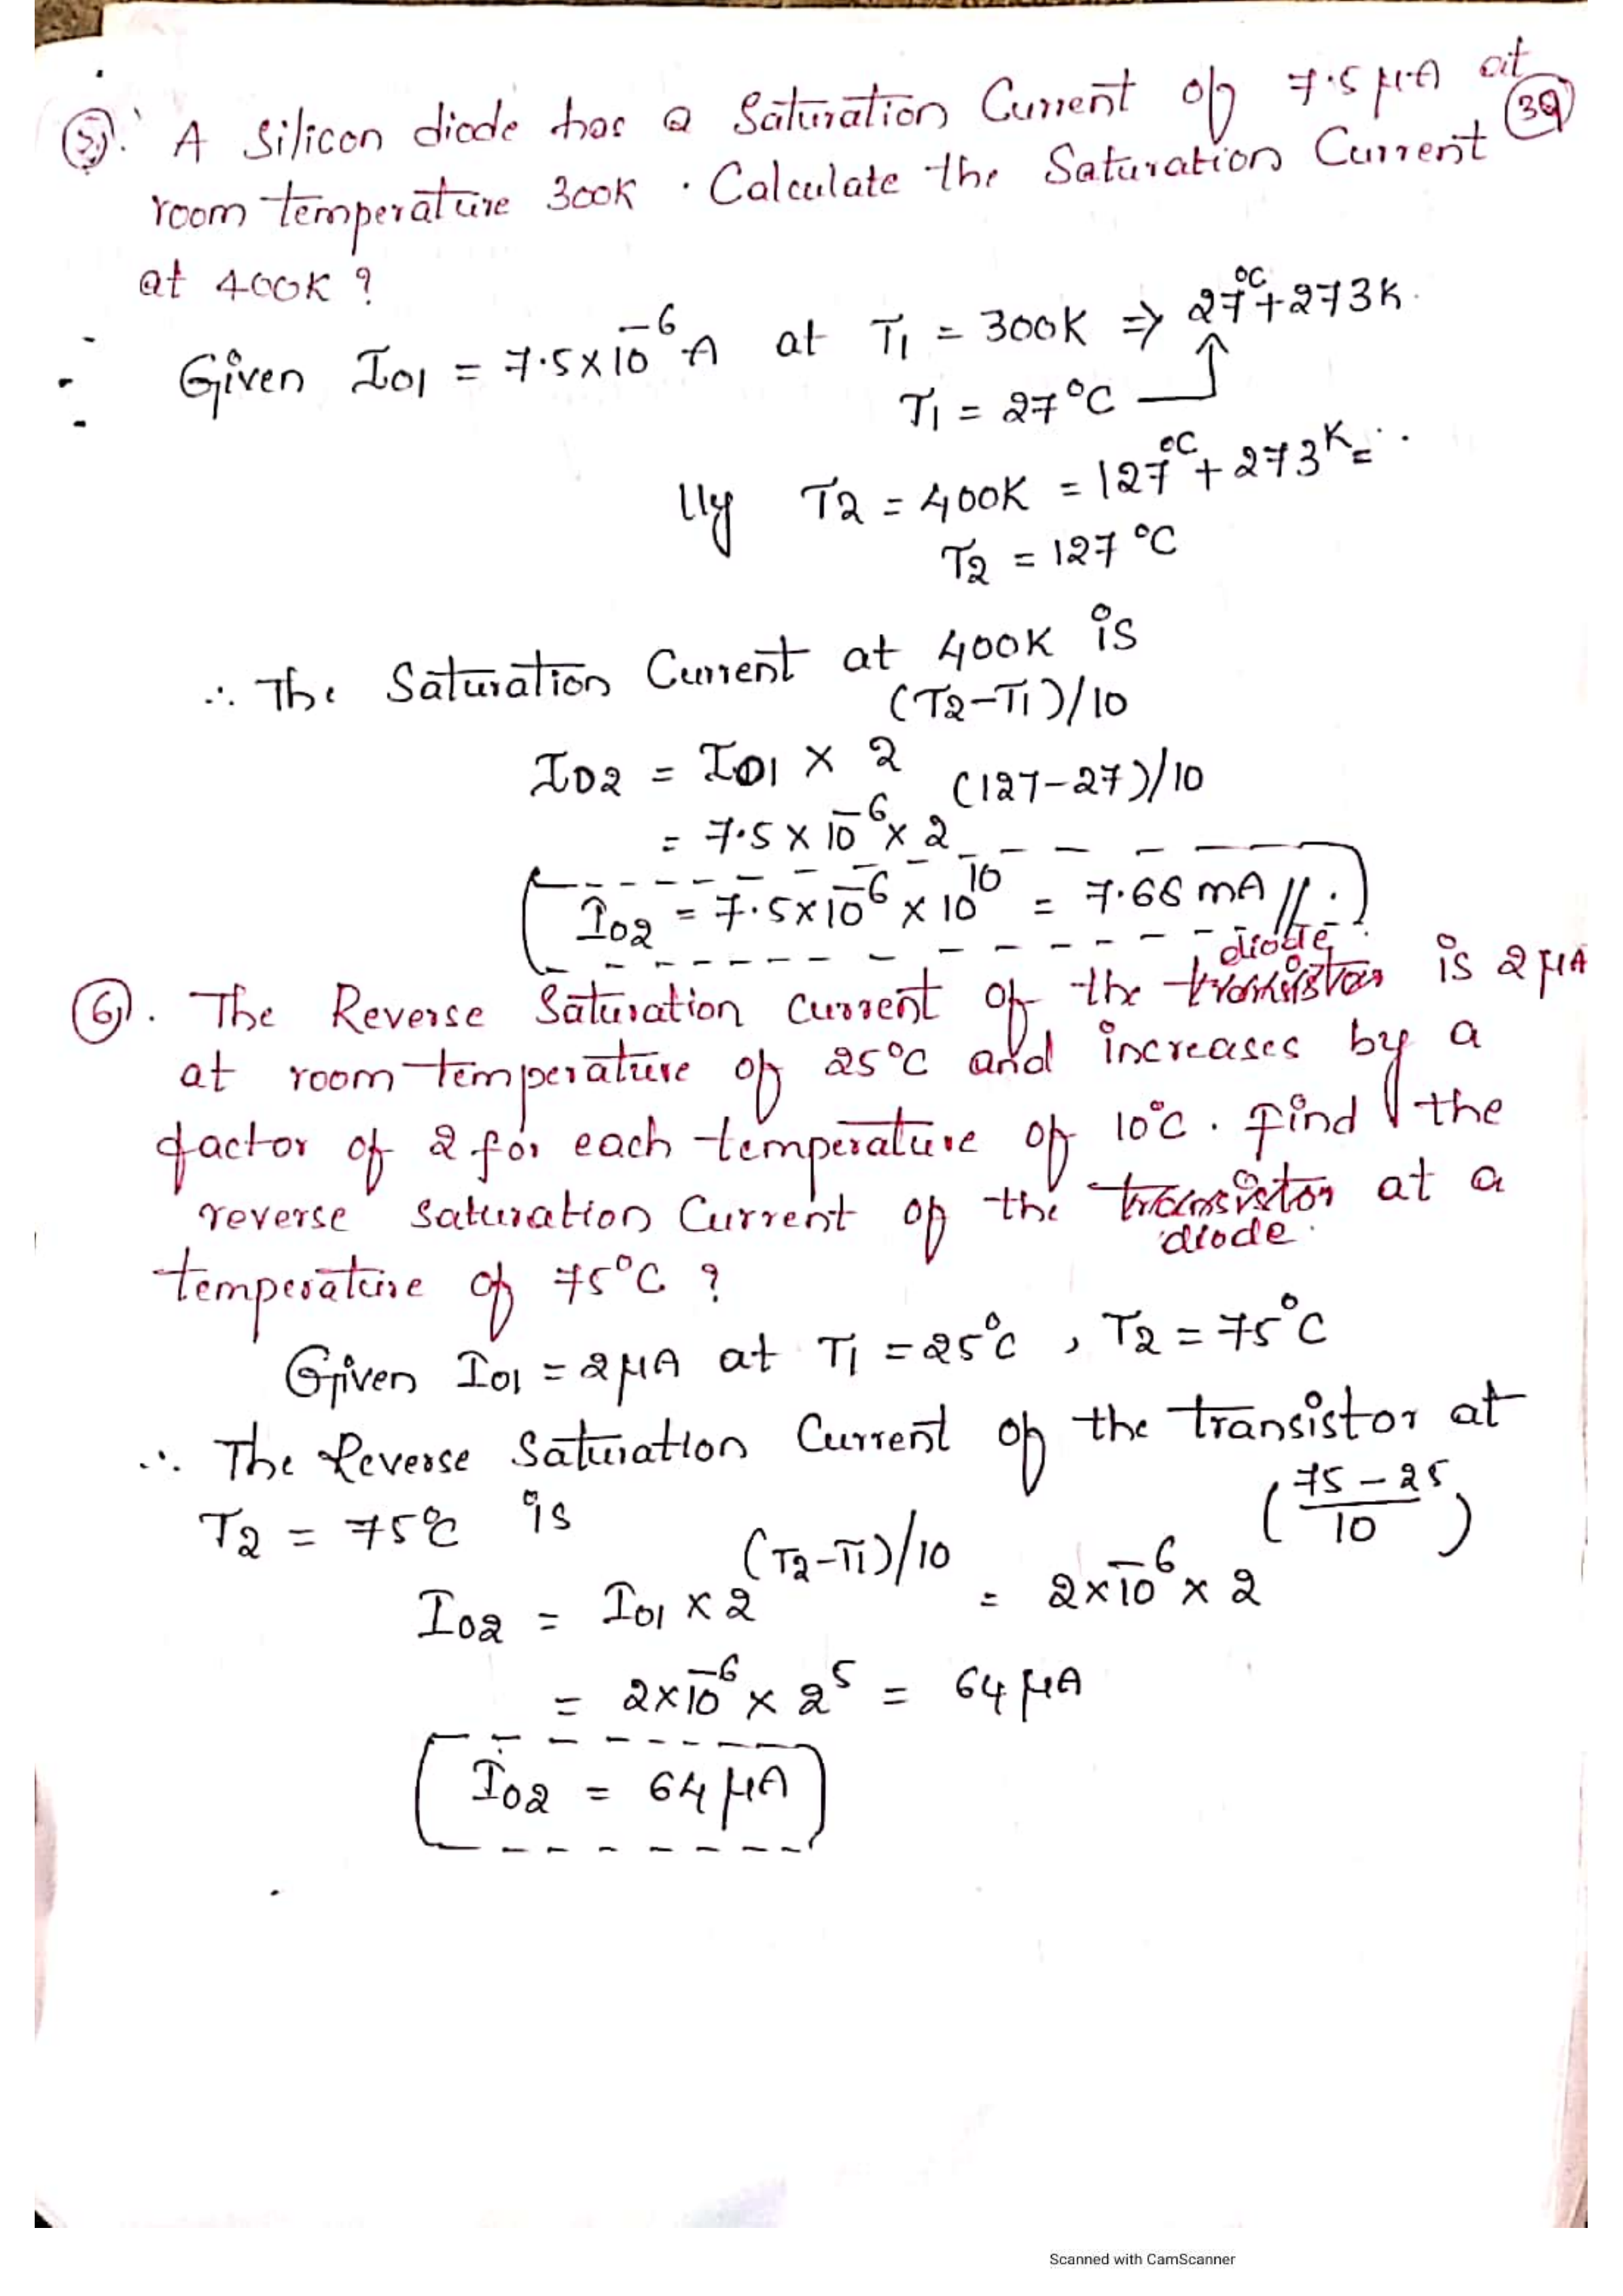 5). A silicon diode has a Saturation Current of 7.5 μA at
39
room temperature 300K. Calculate the Saturation Current
at 400K ?
Given I01 = 7.5×10^-6 A at T1 = 300K ⇒ 27°C+273K.
T1 = 27°C
lly T2 = 400K = 127°C + 273K =
T2 = 127 °C
∴ The Saturation Current at 400K is
I02 = I01 × 2^(T2-T1)/10
= 7.5 × 10^-6 × 2^(127-27)/10
I02 = 7.5×10^-6 × 10^10 = 7.68 mA //.
diode
6). The Reverse Saturation current of the transistor is 2 μA
at room temperature of 25°C and increases by a
factor of 2 for each temperature of 10°C. Find the
reverse saturation Current of the transistor at a
diode.
temperature of 75°C ?
Given I01 = 2 μA at T1 = 25°C , T2 = 75°C
∴ The Reverse Saturation Current of the transistor at
T2 = 75°C is
I02 = I01 × 2^(T2-T1)/10 = 2×10^-6 × 2^(75-25/10)
= 2×10^-6 × 2^5 = 64 μA
I02 = 64 μA
Scanned with CamScanner